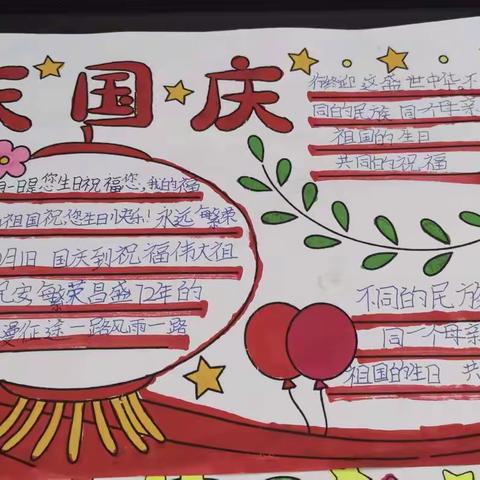 庆国庆
你终迎 这盛世中华.不
同的民族 同一个母亲
祖国的生日
共同的祝福
月一日是您生日祝福您,我的福
祖国祝您生日快乐!永远繁荣
月1日 国庆到祝福伟大祖
民安繁荣昌盛72年的
漫征途一路风雨一路
不同的民族
同一个母亲
祖国的生日 共